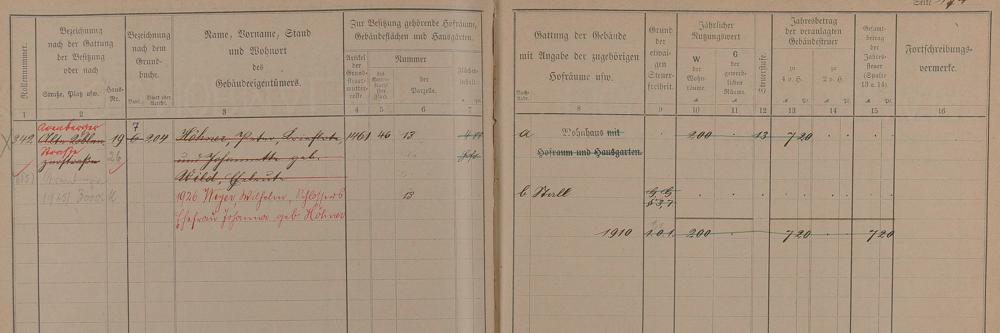 Seite
Rollnummer.
Bezeichnung
nach der Gattung
der Besitzung
oder nach
Straße, Platz usw.
Haus-
Nr.
Bezeichnung
nach dem
Grund-
buche.
Band
Blatt oder Artikel.
Name, Vorname, Stand
und Wohnort
des
Gebäudeeigentümers.
Zur Besitzung gehörende Hofräume,
Gebäudeflächen und Hausgärten.
Artikel
der
Grund-
steuer-
mutter-
rolle
Nummer
des
Karten-
blatts
der
Parzelle.
Flächen-
inhalt.
1 2 3 4 5 6 7
342
Arenberger
Straße
19
26
7
6 204
Höhner, Peter,
und Johannette geb.
Wild, Eheleut
1461 46 13
1926 Weyer, Wilhelm, Schlosser
Ehefrau Johanna geb Höhner
13
Gattung der Gebäude
mit Angabe der zugehörigen
Hofräume usw.
Grund
der
etwai-
gen
Steuer-
freiheit.
Jährlicher
Nutzungswert
W
der
Wohn-
räume.
G
der
gewerb-
lichen
Räume.
Steuerstufe
Jahresbetrag
der veranlagten
Gebäudesteuer
zu
4 v. H.
zu
2 v. H.
Gesamt-
betrag
der
Jahres-
steuer
(Spalte
13 u. 14).
Fortschreibungs-
vermerke.
8 9 10 11 12 13 14 15 16
a Wohnhaus mit 200 13 7 20
Hofraum und Hausgarten
b Stall
1910 200 7 20 7 20